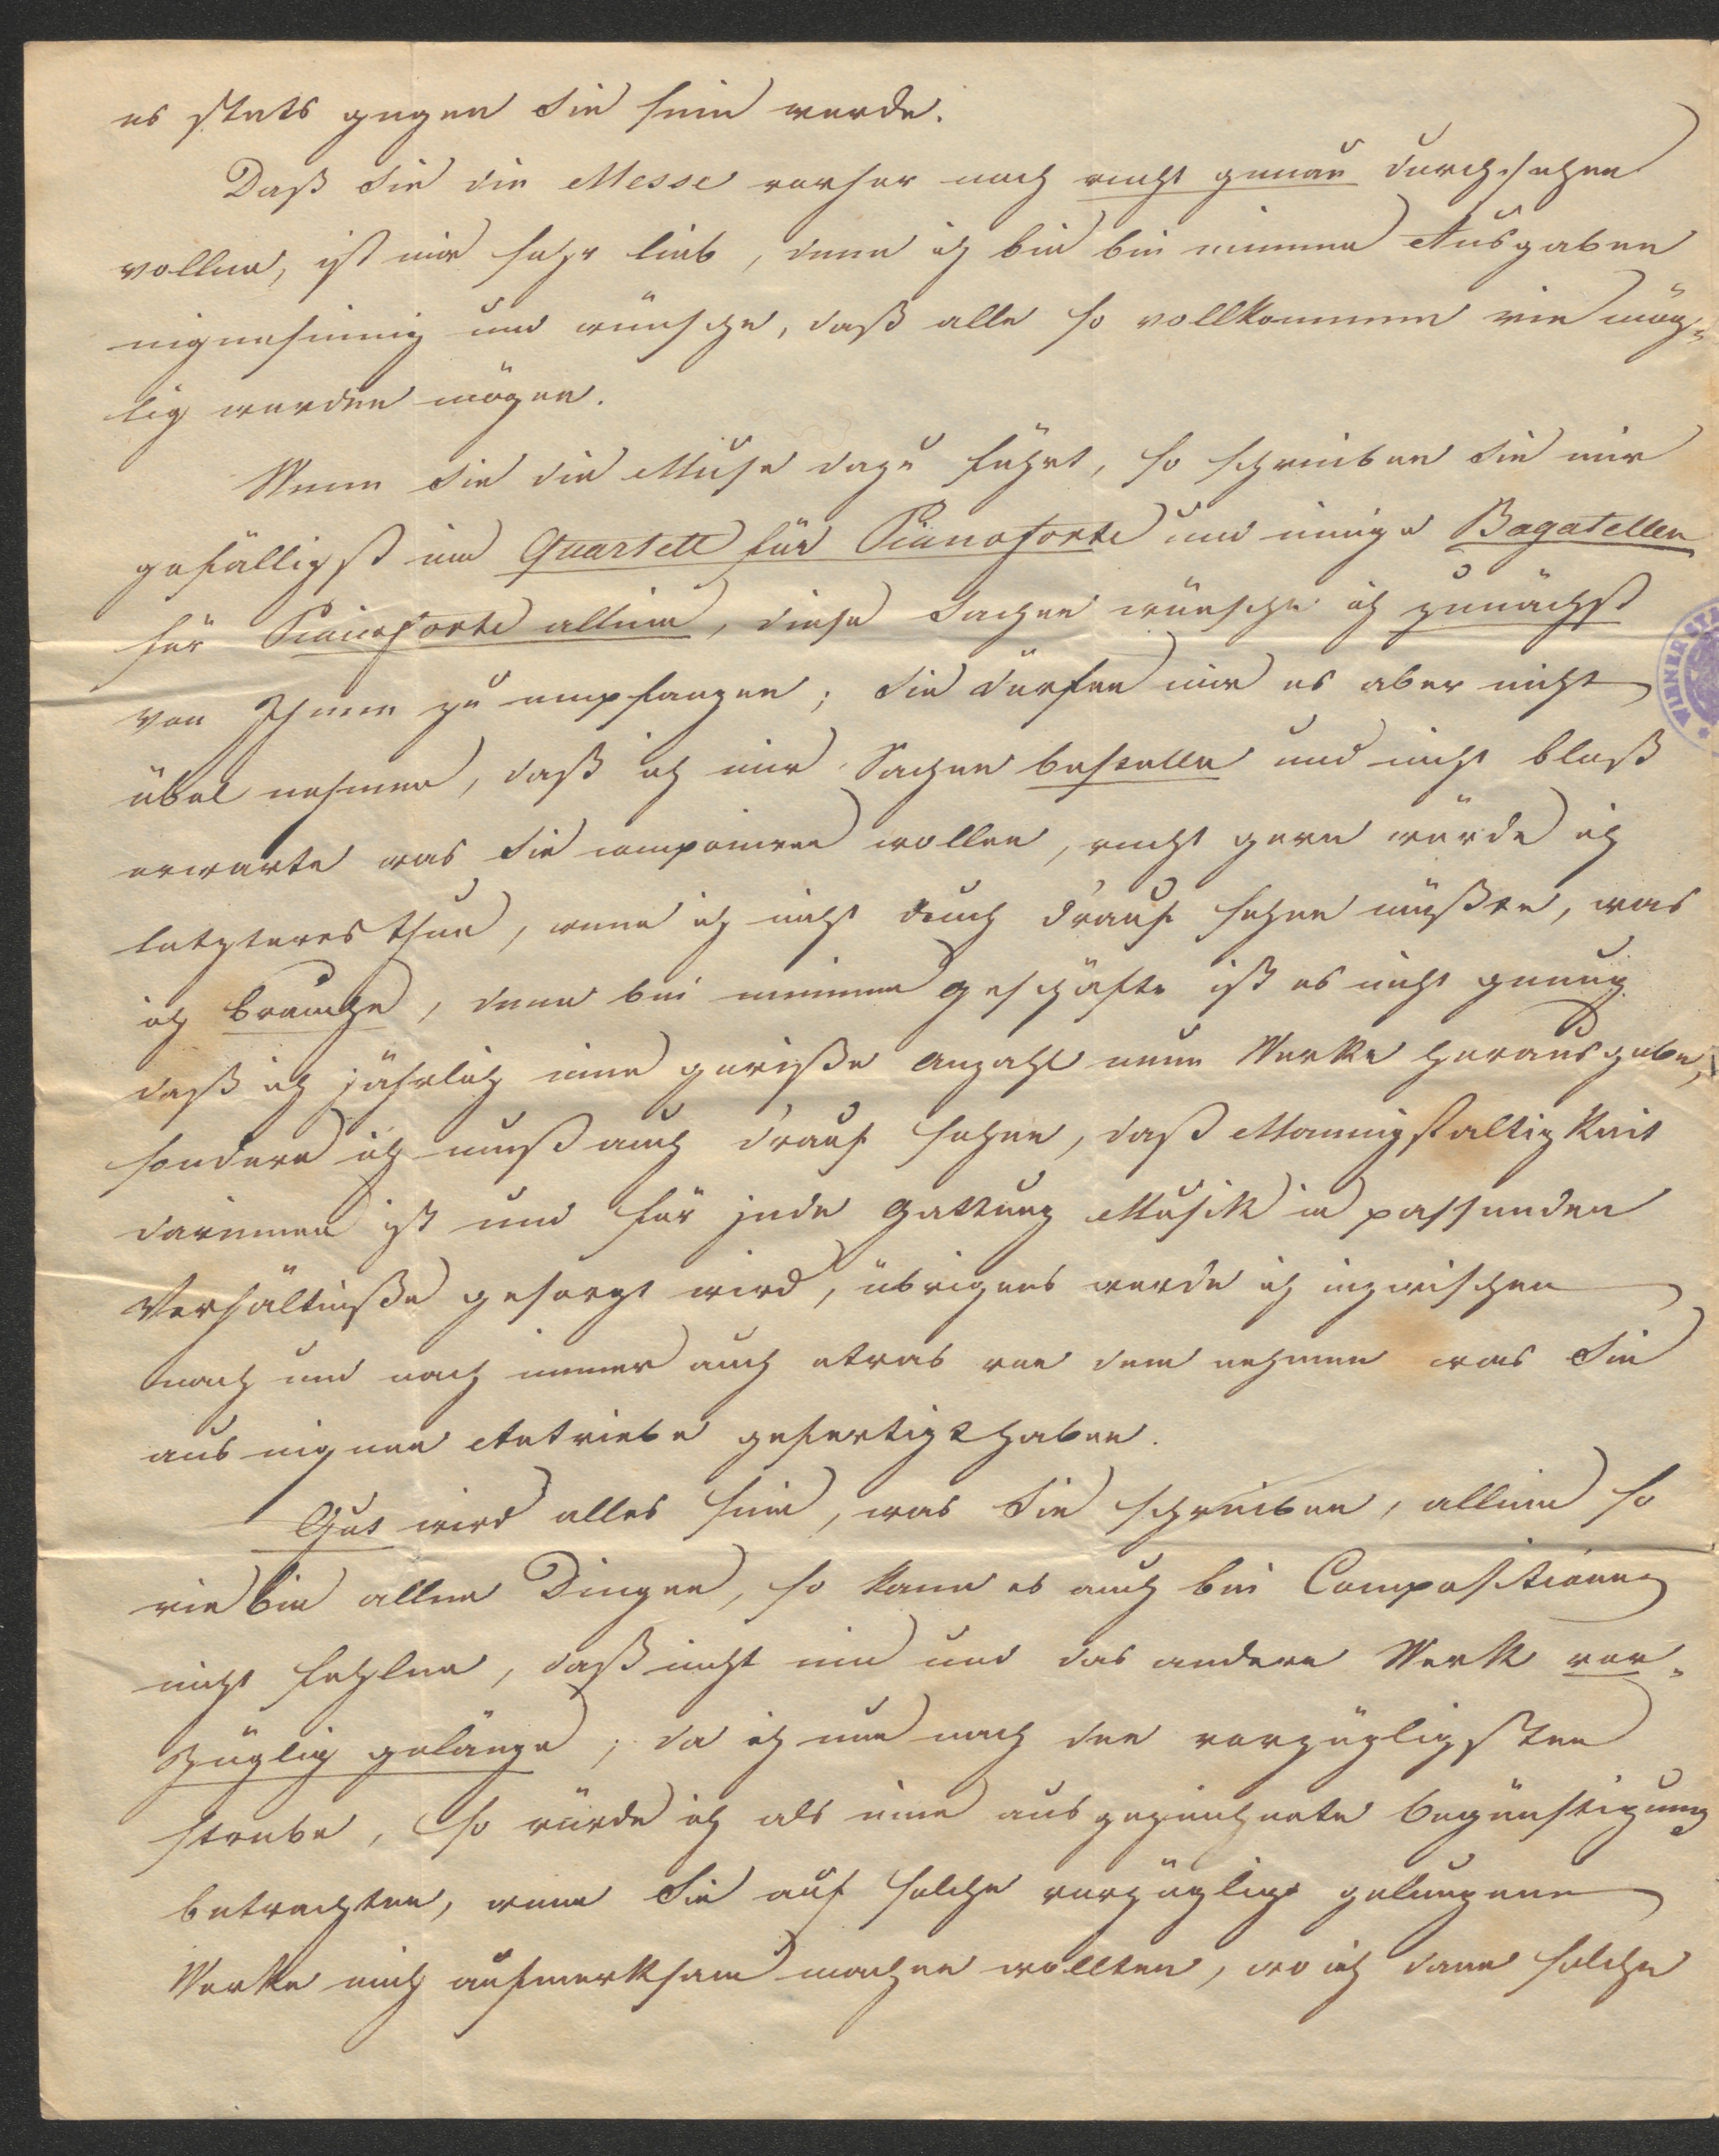 es stets gegen Sie sein werde.
Daß Sie die Messe vorher noch recht genau durchsehen
wollen, ist mir sehr lieb, denn ich bin bei meinen Ausgaben
eigensinnig und wünsche, daß alle so vollkommen wie mög-
lig werden mögen.
Wenn Sie die Muse dazu führt, so schreiben Sie mir
gefälligst ein Quartett für Pianoforte und einige Bagatellen
für Pianoforte allein, diese Sachen wünsche ich zunächst
von Ihnen zu empfangen; Sie dürfen mir es aber nicht
übel nehmen, daß ich mir Sachen bestelle und nicht blos
erwarte was Sie componiren wollen, recht gern würde ich
letzteres thun, wenn ich nicht auch drauf sehen müßte, was
ich brauche, denn bei meinem Geschäfte ist es nicht genug
daß ich jährlich eine gewisse Anzahl neue Werke herausgebe,
sondern ich muß auch drauf sehen, daß Mannigfaltigkeit
darinnen ist und für jede Gattung Musik in passenden
Verhältnisse gesorgt wird, übrigens werde ich inzwischen
nach und nach immer auch etwas von dem nehmen was Sie
aus eignen Antriebe gefertigt haben.
Gut wird alles sein, was Sie schreiben, allein so
wie bei allen Dingen, so kann es auch bei Compositionen
nicht fehlen, daß nicht ein und das andere Werk vor-
züglig gelänge; da ich nun nach den vorzügligsten
strebe, so würde ich als eine ausgezeichnete Begünstigung
betrachten, wenn Sie auf solche vorzüglig gelungene
Werke mich aufmerksam machen wollten, wo ich dann solche
WIENER STA